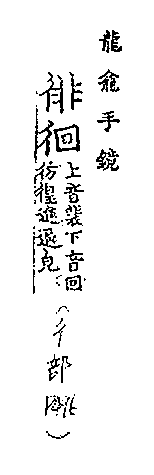 龍龕手鏡
徘徊
上音裴下音回
彷徨進退皃
(彳部